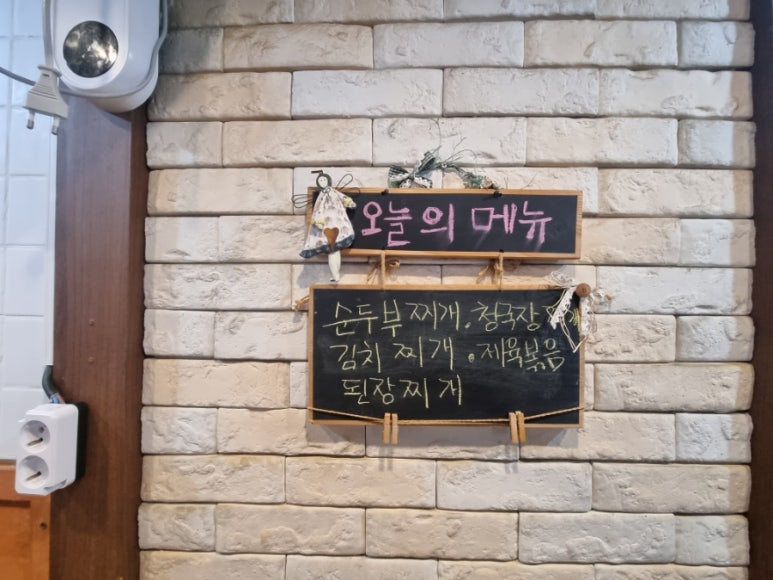 오늘의 메뉴
순두부 찌개 . 청국장
김치 찌개 . 제육볶음
된장찌게